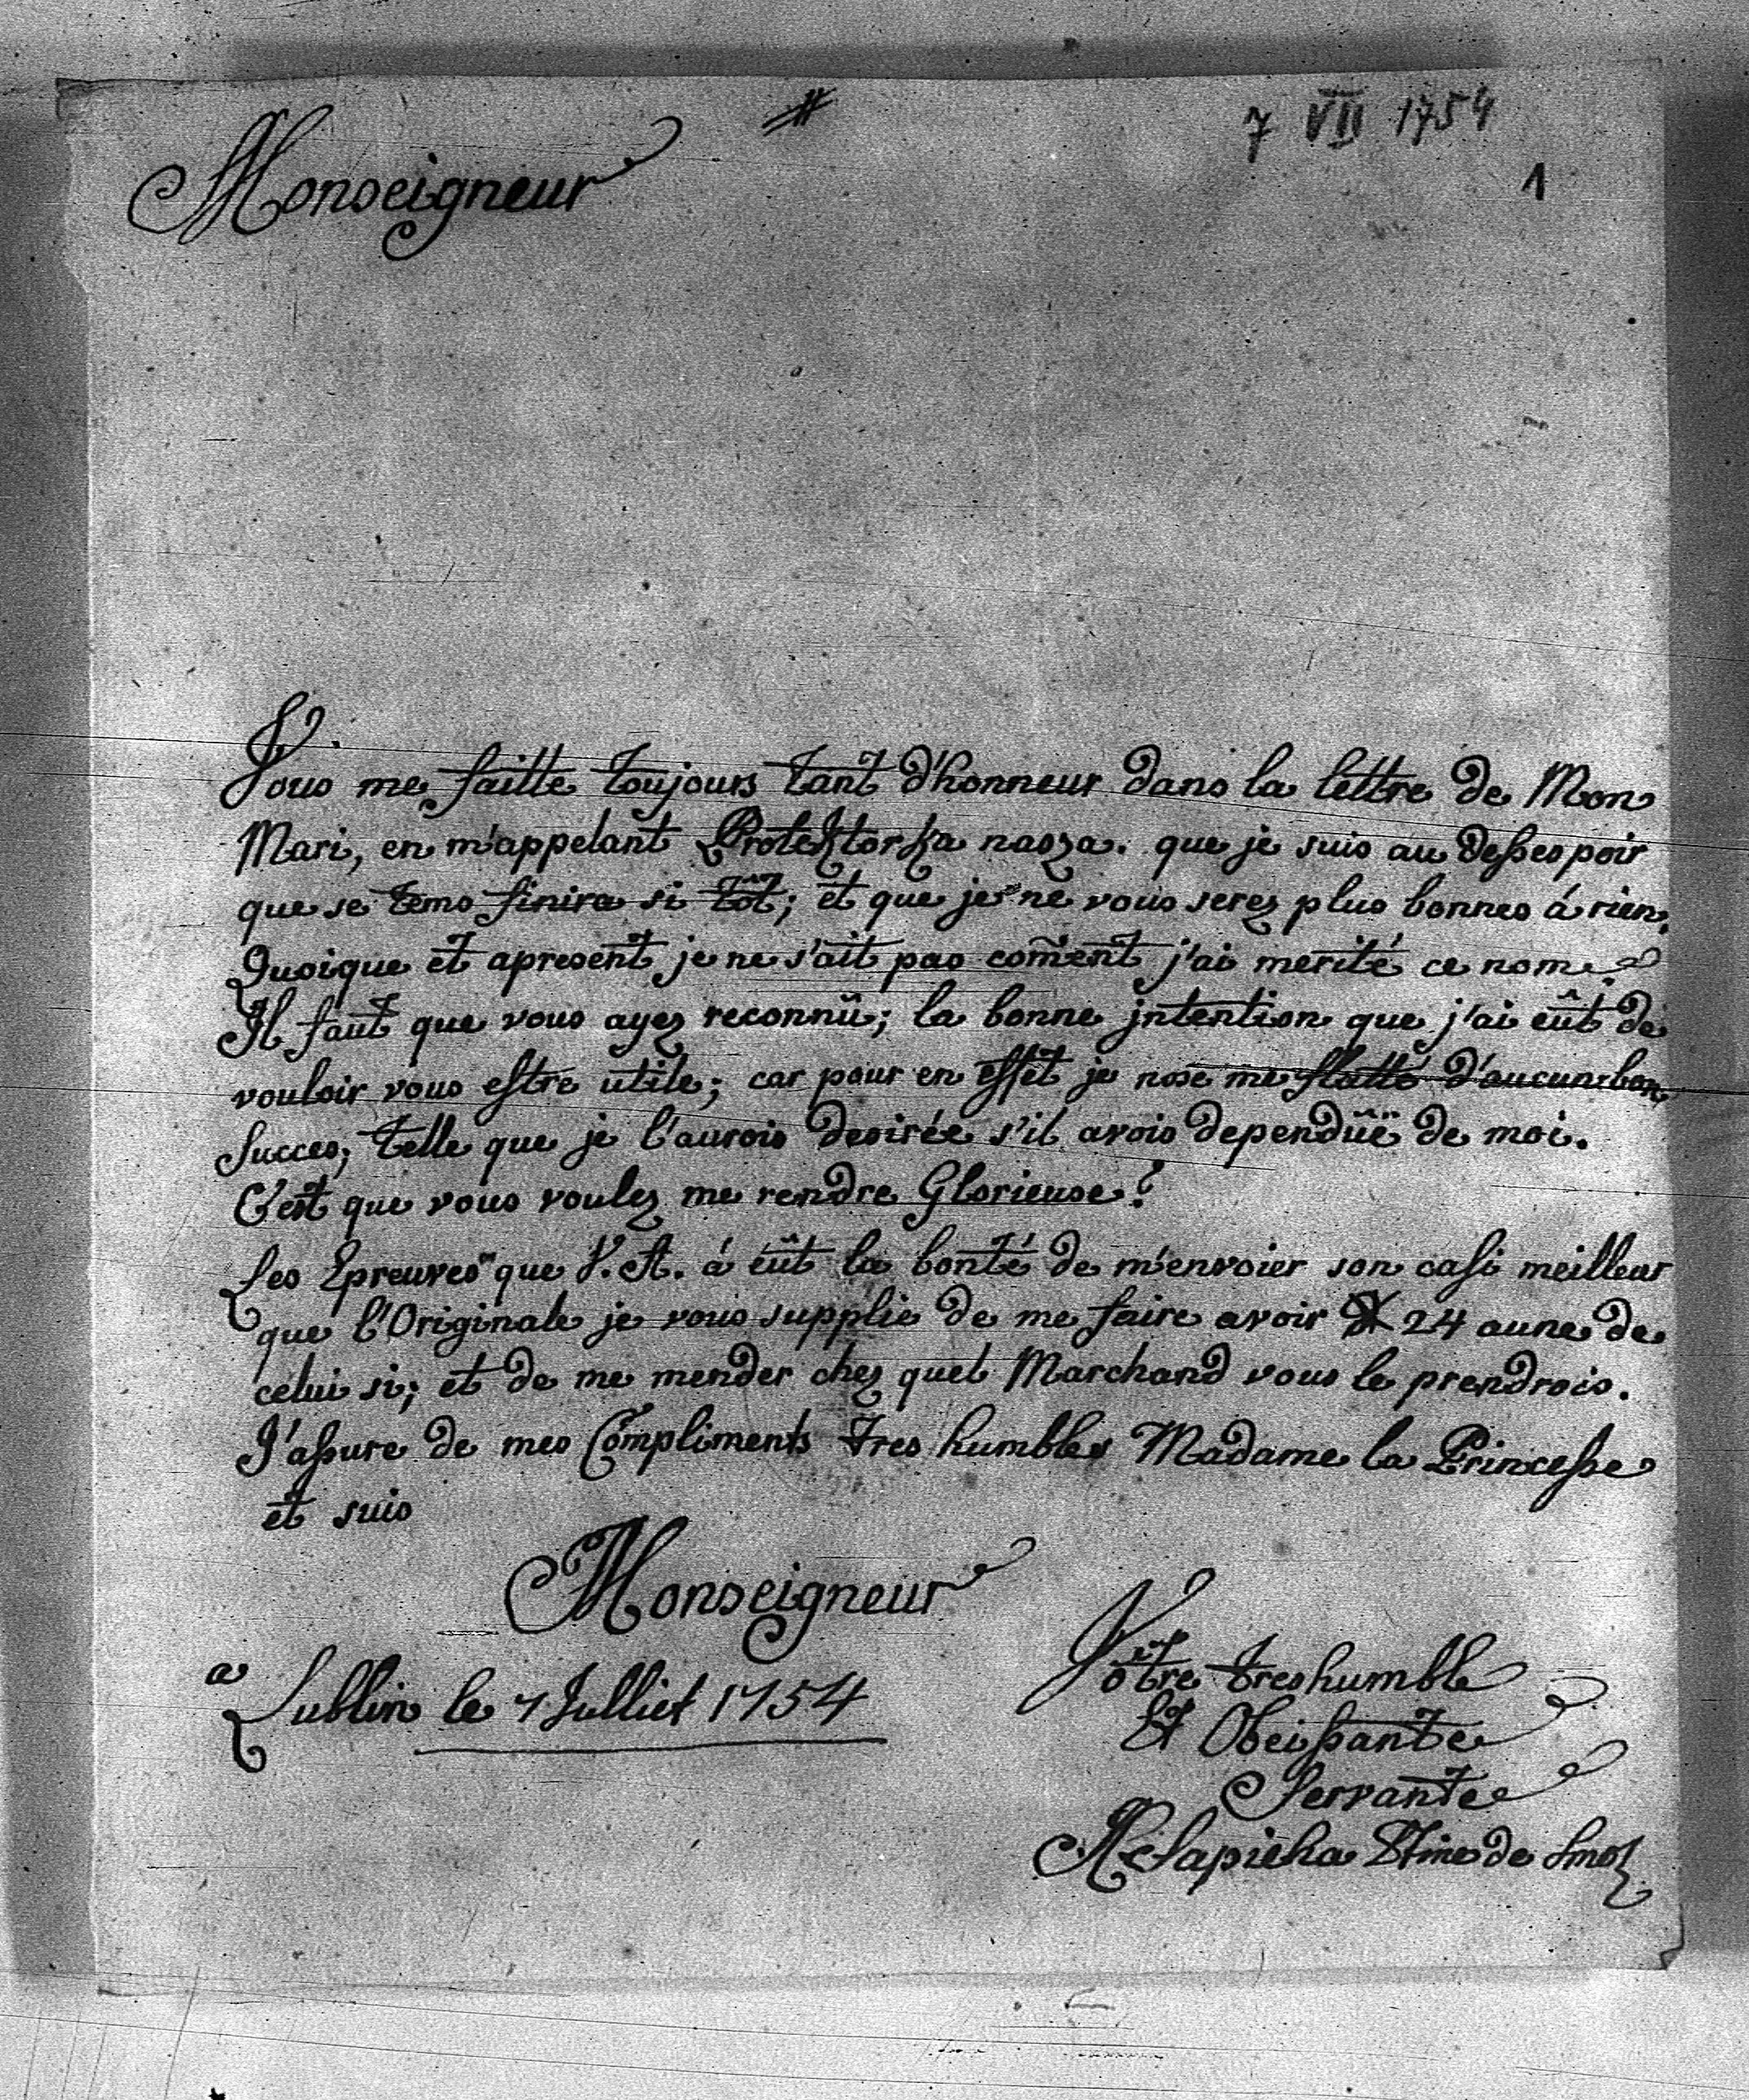 7 VII 1754
1
Monseigneur
Vous me faitte toujours tant d'honneur dans la lettre de Mon
Mari, en m'appelant Protektorka nasza. que je suis au dessespoir
que se tems finira si tôt; et que je ne vous serez plus bonnes á rien,
Quoique et apresent je ne s'ait pas com̃ent j'ai merité ce nom
Il faut que vous ayez reconnû; la bonne jntention que j'ai eût de
vouloir vous estre utile; car pour en effet je nose me flatté d'aucun bon
Succes, telle que je l'aurois desirée s'il avois dependüe de moi.
C'est que vous voulez me rendre Glorieuse?
Les Epreuves que V. A. á eût la bonté de m'envoier son casi meilleur
que l'Originale je vous supplie de me faire avoir 24 aune de
celui si; et de me mender chez quel Marchand vous le prendrois.
J'assure de mes Compliments tres humbles Madame la Princesse
et suis
Monseigneur
a Lublin le 7 Julliet 1754
Vôtre treshumble
Et Obeissante
Servante
Sapieha de Smol